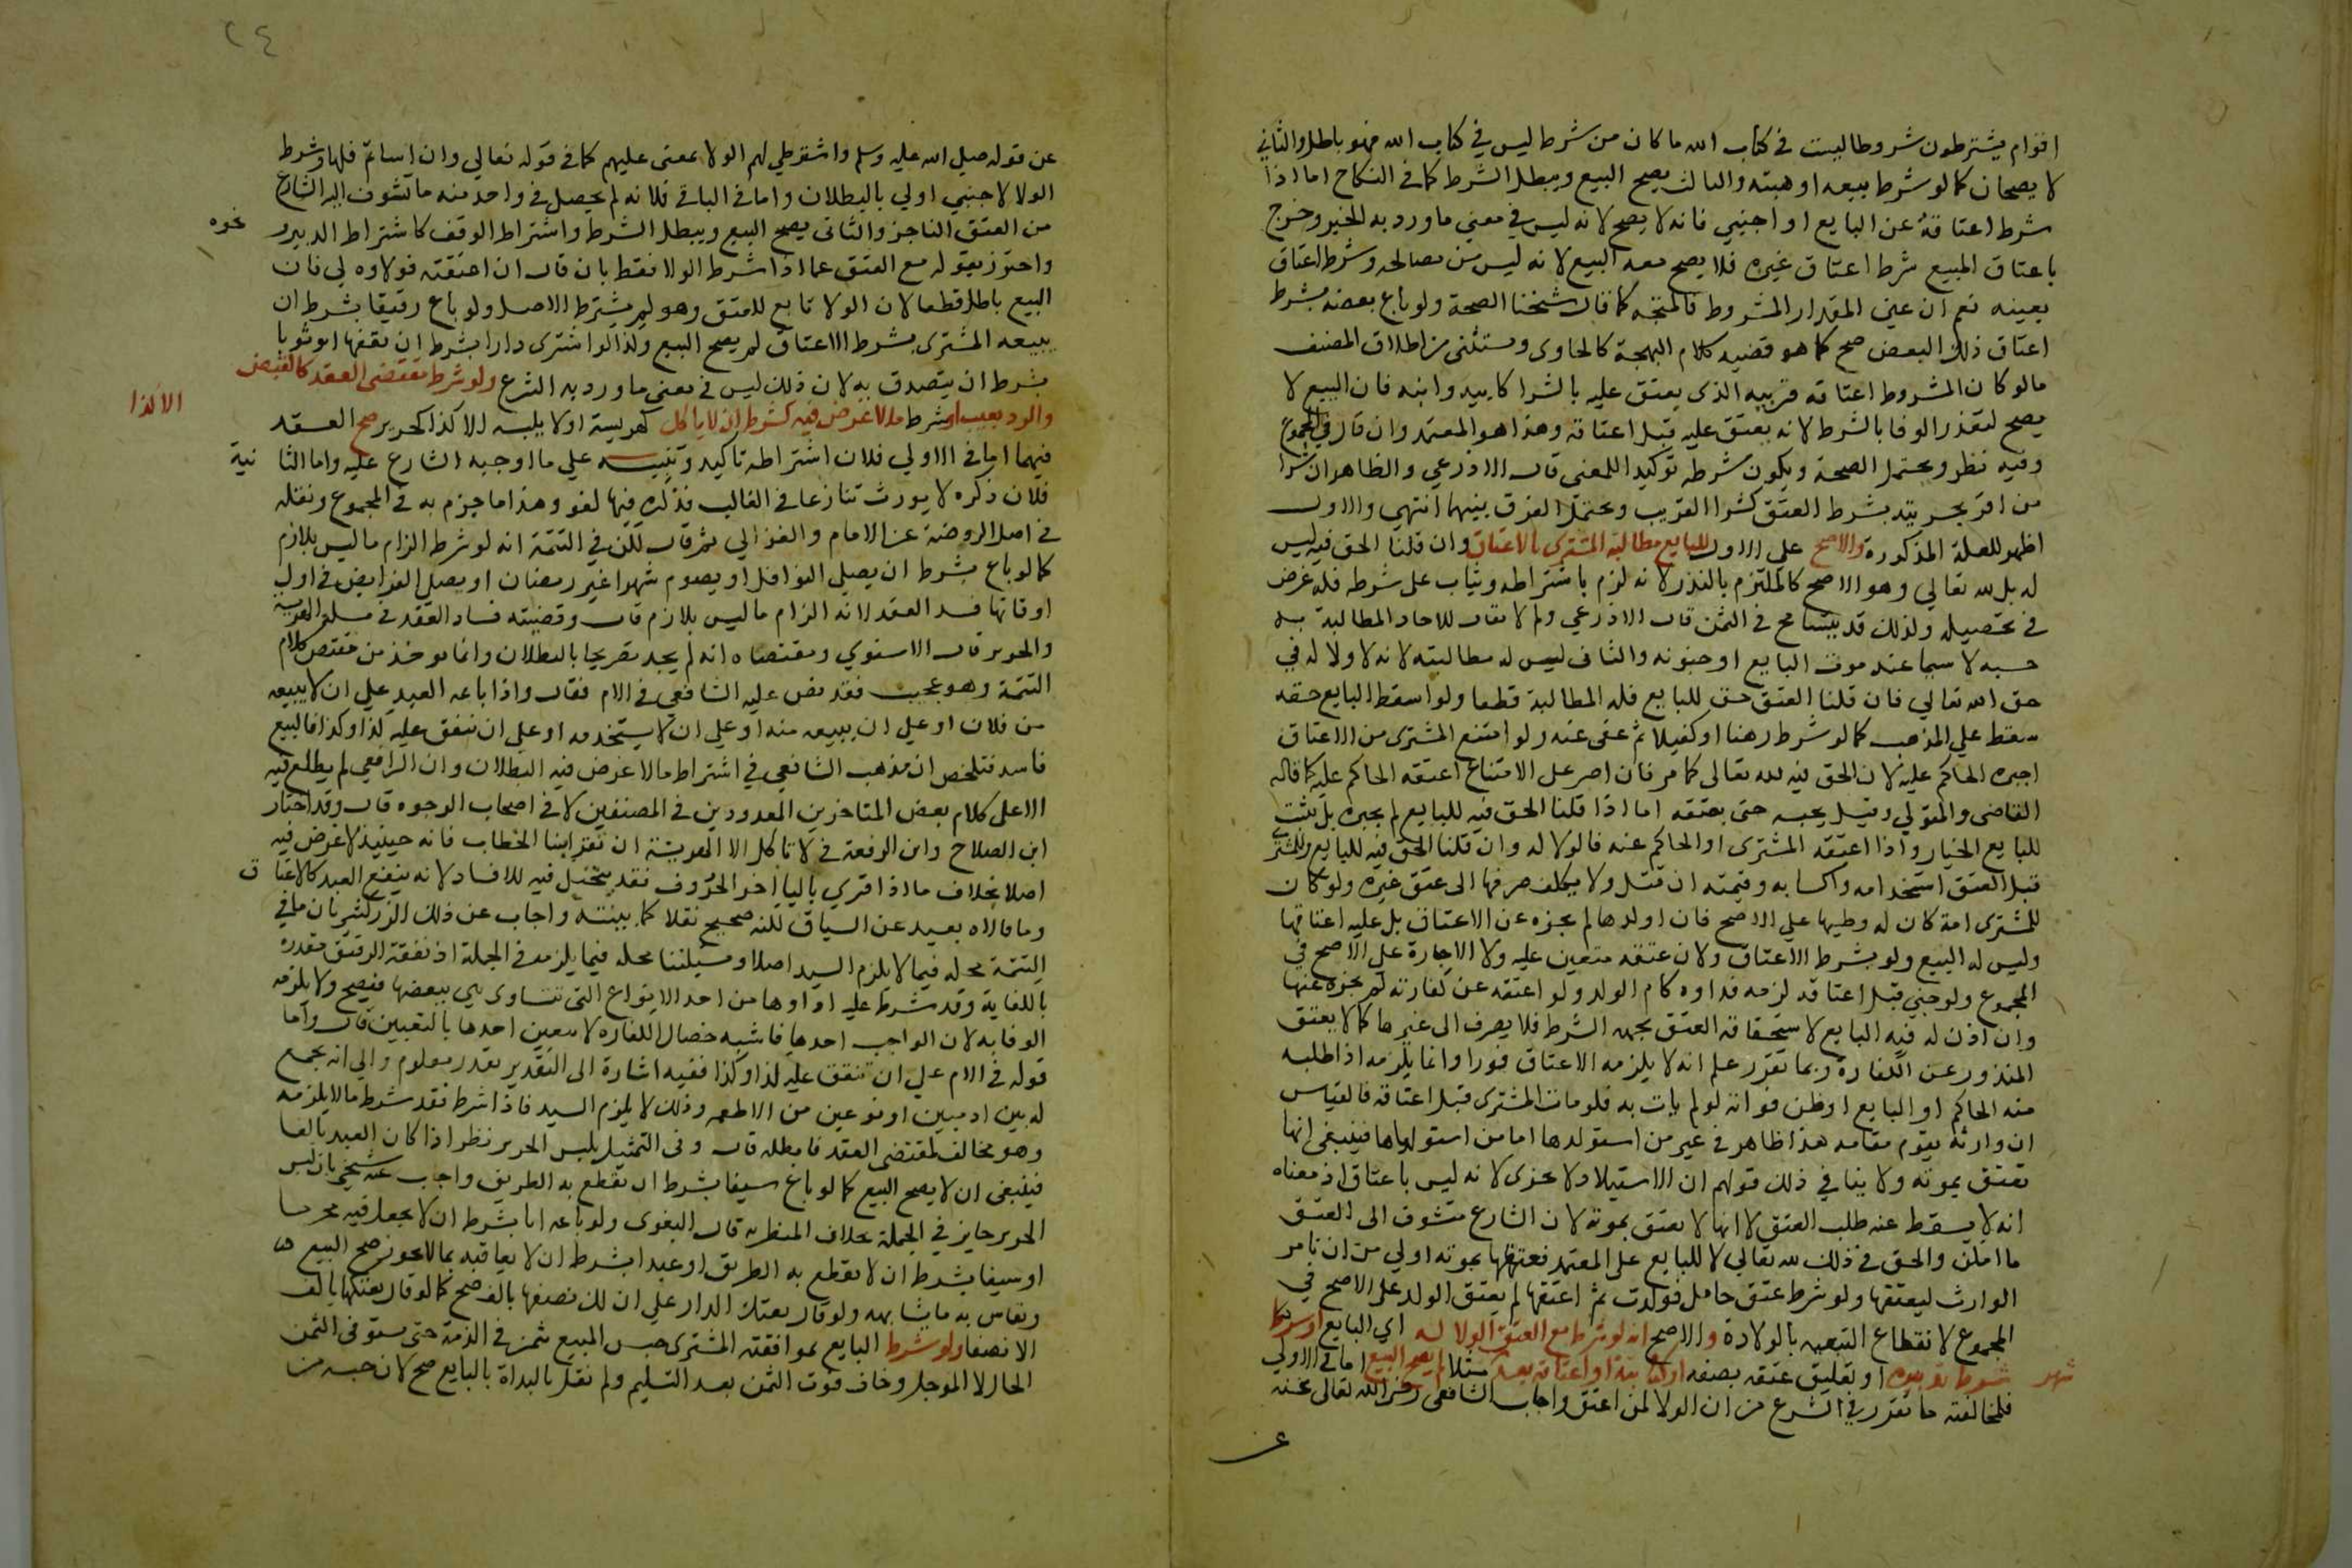 اقوام يشترطون شروطا ليست في كتاب الله ما كان من شرط ليس في كتاب الله فهو باطل والثاني
لا يصحان كما لو شرط بيعه او هبته والثالث يصح البيع ويبطل الشرط كما في النكاح اما اذا
شرط اعتاقه عن البايع او اجنبي فانه لا يصح لانه ليس في معني ما ورد به الخبر وخرج
باعتاق المبيع شرط اعتاق غيره فلا يصح معه البيع لانه ليس من مصالحه وشرط اعتاق
بعينه نعم ان عين المقدار المشروط فالمتجه كما قال شيخنا الصحة ولو باع بعضه بشرط
اعتاق ذلك البعض صح كما هو قضيه كلام البهجة كالحاوى ويستثنى من اطلاق المصنف
مالو كان المشروط اعتاقه قريبه الذى يعتق عليه بالشرا كابيه وابنه فان البيع لا
يصح لتعذر الوفا بالشرط لانه يعتق عليه قبل اعتاقه وهذا هو المعتمد وان قال في المجموع
وفيه نظر ويحتمل الصحة ويكون شرطه توكيد اللمعنى قال الاذرعي والظاهر ان شرا
من اقر بحريته بشرط العتق كشرا القريب ويحتمل الفرق بينهما انتهي والاول
اظهر للعلة المذكورة والاصح علي الاول للبايع مطالبة المشترى بالاعتاق وان قلنا الحق فيه ليس
له بل لله تعالي وهو الاصح كالملتزم بالنذر لانه لزم باشتراطه ويثاب على شرطه فله غرض
في تحصيله ولذلك قد يتسامح في الثمن قال الاذرعي ولم لا يقال للاحاد المطالبة به
حسبه لا سيما عند موت البايع او جنونه والثانى ليس له مطالبته لانه لا ولا له في
حق الله تعالي فان قلنا العتق حق للبايع فله المطالبة قطعا ولو اسقط البايع حقه
سقط علي المذهب كما لو شرط رهنا او كفيلا ثم عفى عنه ولو امتنع المشترى من الاعتاق
اجبره الحاكم عليه لان الحق فيه لله تعالى كما مر فان اصر على الامتناع اعتقه الحاكم عليه كما قاله
القاضى والمتولي وقيل يحبسه حتى يعتقه اما اذا قلنا الحق فيه للبايع لم يجبره بل يثبت
للبايع الخيار واذا اعتقه المشترى او الحاكم عنه فالولا له وان قلنا الحق فيه للبايع وللمشترى
قبل العتق استخدامه واكسابه وقيمته ان قتل ولا يكلف صرفها الى عتق غيره ولو كان
المشترى امة كان له وطيها علي الاصح فان اولدها لم يجزه عن الاعتاق بل عليه اعتاقها
وليس له البيع ولو بشرط الاعتاق ولان عتقه متعين عليه ولا الاجارة على الاصح في
المجموع ولو جني قبل اعتاقه لزمه فداوه كام الولد ولو اعتقه عن كفارته لم يجزه عنها
وان اذن له فيه البايع لاستحقاقه العتق بجهة الشرط فلا يصرف الى غيرها كما لا يعتق
المنذور عن الكفارة وبما تقرر علم انه لا يلزمه الاعتاق فورا وانما يلزمه اذا طلبه
منه الحاكم او البايع او ظن فواته لو لم يات به فلو مات المشترى قبل اعتاقه فالقياس
ان وارثه يقوم مقامه هذا ظاهر في غير من استولدها اما من استولدها فينبغي انها
تعتق بموته ولا ينافي ذلك قولهم ان الاستيلاد لا يجزى لانه ليس باعتاق اذ معناه
انه لا يسقط عنه طلب العتق لا انها لا تعتق بموته لان الشارع متشوف الى العتق
ما امكن والحق في ذلك لله تعالي لا للبايع على المعتمد فعتقها بموته اولي من ان نامر
الوارث ليعتقها ولو شرط عتق حامل فولدت ثم اعتقها لم يعتق الولد على الاصح في
المجموع لانقطاع التبعيه بالولادة والاصح انه لو شرط مع العتق الولا له اي البايع او شرط
شرط تدبيره او تعليق عتقه بصفه او كتابته او اعتاقه بعد شهر مثلا لم يصح البيع اما في الاولي
فلمخالفته ما تقرر في الشرع من ان الولا لمن اعتق واجاب الشافعى رضى الله تعالى عنه
عن
٢٤
عن قوله صلي الله عليه وسلم واشترطي لهم الولا بمعنى عليهم كما في قوله تعالي وان اساتم فلها وشرط
الولا لاجنبي اولي بالبطلان واما في الباقي فلانه لم يحصل في واحد منه ما تشوف اليه الشارع
من العتق الناجز والثانى يصح البيع ويبطل الشرط واشتراط الوقف كاشتراط التدبير و نحوه
واحترز بقوله مع العتق عما اذا شرط الولا فقط بان قال ان اعتقته فولاوه لي فان
البيع باطل قطعا لان الولا تابع للعتق وهو لم يشترط الاصل ولو باع رقيقا بشرط ان
يبيعه المشترى بشرط الاعتاق لم يصح البيع وكذا لو اشترى دارا بشرط ان يقفها او ثوبا
بشرط ان يتصدق به لان ذلك ليس في معنى ما ورد به الشرع ولو شرط مقتضى العقد كالقبض
والرد بعيب او شرط ما لا غرض فيه كشرط ان لا ياكل الا كذا كهريسة او لا يلبسه الا كذا كحرير صح العقد
فيهما اما في الاولي فلان اشتراطه تاكيد وتنبيه علي ما اوجبه الشارع عليه واما الثانية
فلان ذكره لا يورث تنازعا في الغالب فذكره فيها لغو وهذا ما جزم به في المجموع ونقله
في اصل الروضة عن الامام والغزالي ثم قال لكن في التتمة انه لو شرط الزام ما ليس بلازم
كما لو باع بشرط ان يصلي النوافل او يصوم شهرا غير رمضان او يصلي الفرايض في اول
اوقاتها فسد العقد لانه الزام ما ليس بلازم قال وقضيته فساد العقد في مسلة الهريسة
والحرير قال الاسنوي ومقتضاه انه لم يجد تصريحا بالبطلان وانما يوخذ من مقتضى كلام
التتمة وهو عجيب فقد نص عليه الشافعي في الام فقال واذا باعه العبد علي ان لا يبيعه
من فلان او علي ان يبيعه منه او علي ان لا يستخدمه او علي ان ينفق عليه كذا وكذا فالبيع
فاسد فتلخص ان مذهب الشافعي في اشتراط ما لا غرض فيه البطلان وان الرافعي لم يطلع فيه
الا على كلام بعض المتاخرين المعدودين في المصنفين لا في اصحاب الوجوه قال وقد اختار
ابن الصلاح وابن الرفعة في لا تاكل الا الهريسة ان تقرا بتا الخطاب فانه حينيذ لا غرض فيه
اصلا بخلاف ما اذا قري باليا اخر الحروف فقد يتخيل فيه للافساد لانه ينفع العبد كالاعتاق
وما قالاه بعيد عن السياق لكنه صحيح نقلا كما بينته واجاب عن ذلك الزركشي بان ما في
التتمة محله فيما لا يلزم السيد اصلا ومسيلتنا محله فيما يلزمه في الجملة اذ نفقة الرقيق مقدرة
بالكفاية وقد شرط عليه اداوها من احد الانواع التى تتساوى هي ببعضها فيصح ولا يلزمه
الوفا به لان الواجب احدها فاشبه خصال الكفاره لا يتعين احدها بالتعيين قال واما
قوله في الام علي ان تنفق عليه كذا وكذا ففيه اشارة الى التقدير بقدر معلوم والي انه يجمع
له بين ادمين او نوعين من الاطعمه وذلك لا يلزم السيد فاذا شرط فقد شرط ما لا يلزمه
وهو مخالف لمقتضى العقد فابطله قال وفى التمثيل بلبس الحرير نظر اذا كان العبد بالغا
فينبغى ان لا يصح البيع كما لو باع سيفا بشرط ان يقطع به الطريق واجاب عنه شيخي بان لبس
الحرير جايز في الجملة بخلاف المنظر به قال البغوى ولو باعه انا بشرط ان لا يجعل فيه محرما
او سيفا بشرط ان لا يقطع به الطريق او عبدا بشرط ان لا يعاقبه بما لا يجوز صح البيع
ويقاس به ما يشابهه ولو قال بعتك الدار علي ان لك نصفها بالف صح كما لو قال بعتكها بالف
الا نصفها ولو شرط البايع بموافقة المشترى حبس المبيع بثمن في الذمة حتى يستوفى الثمن
الحال لا الموجل وخاف فوت الثمن بعد التسليم ولم نقل بالبداة بالبايع صح لان حبسه من